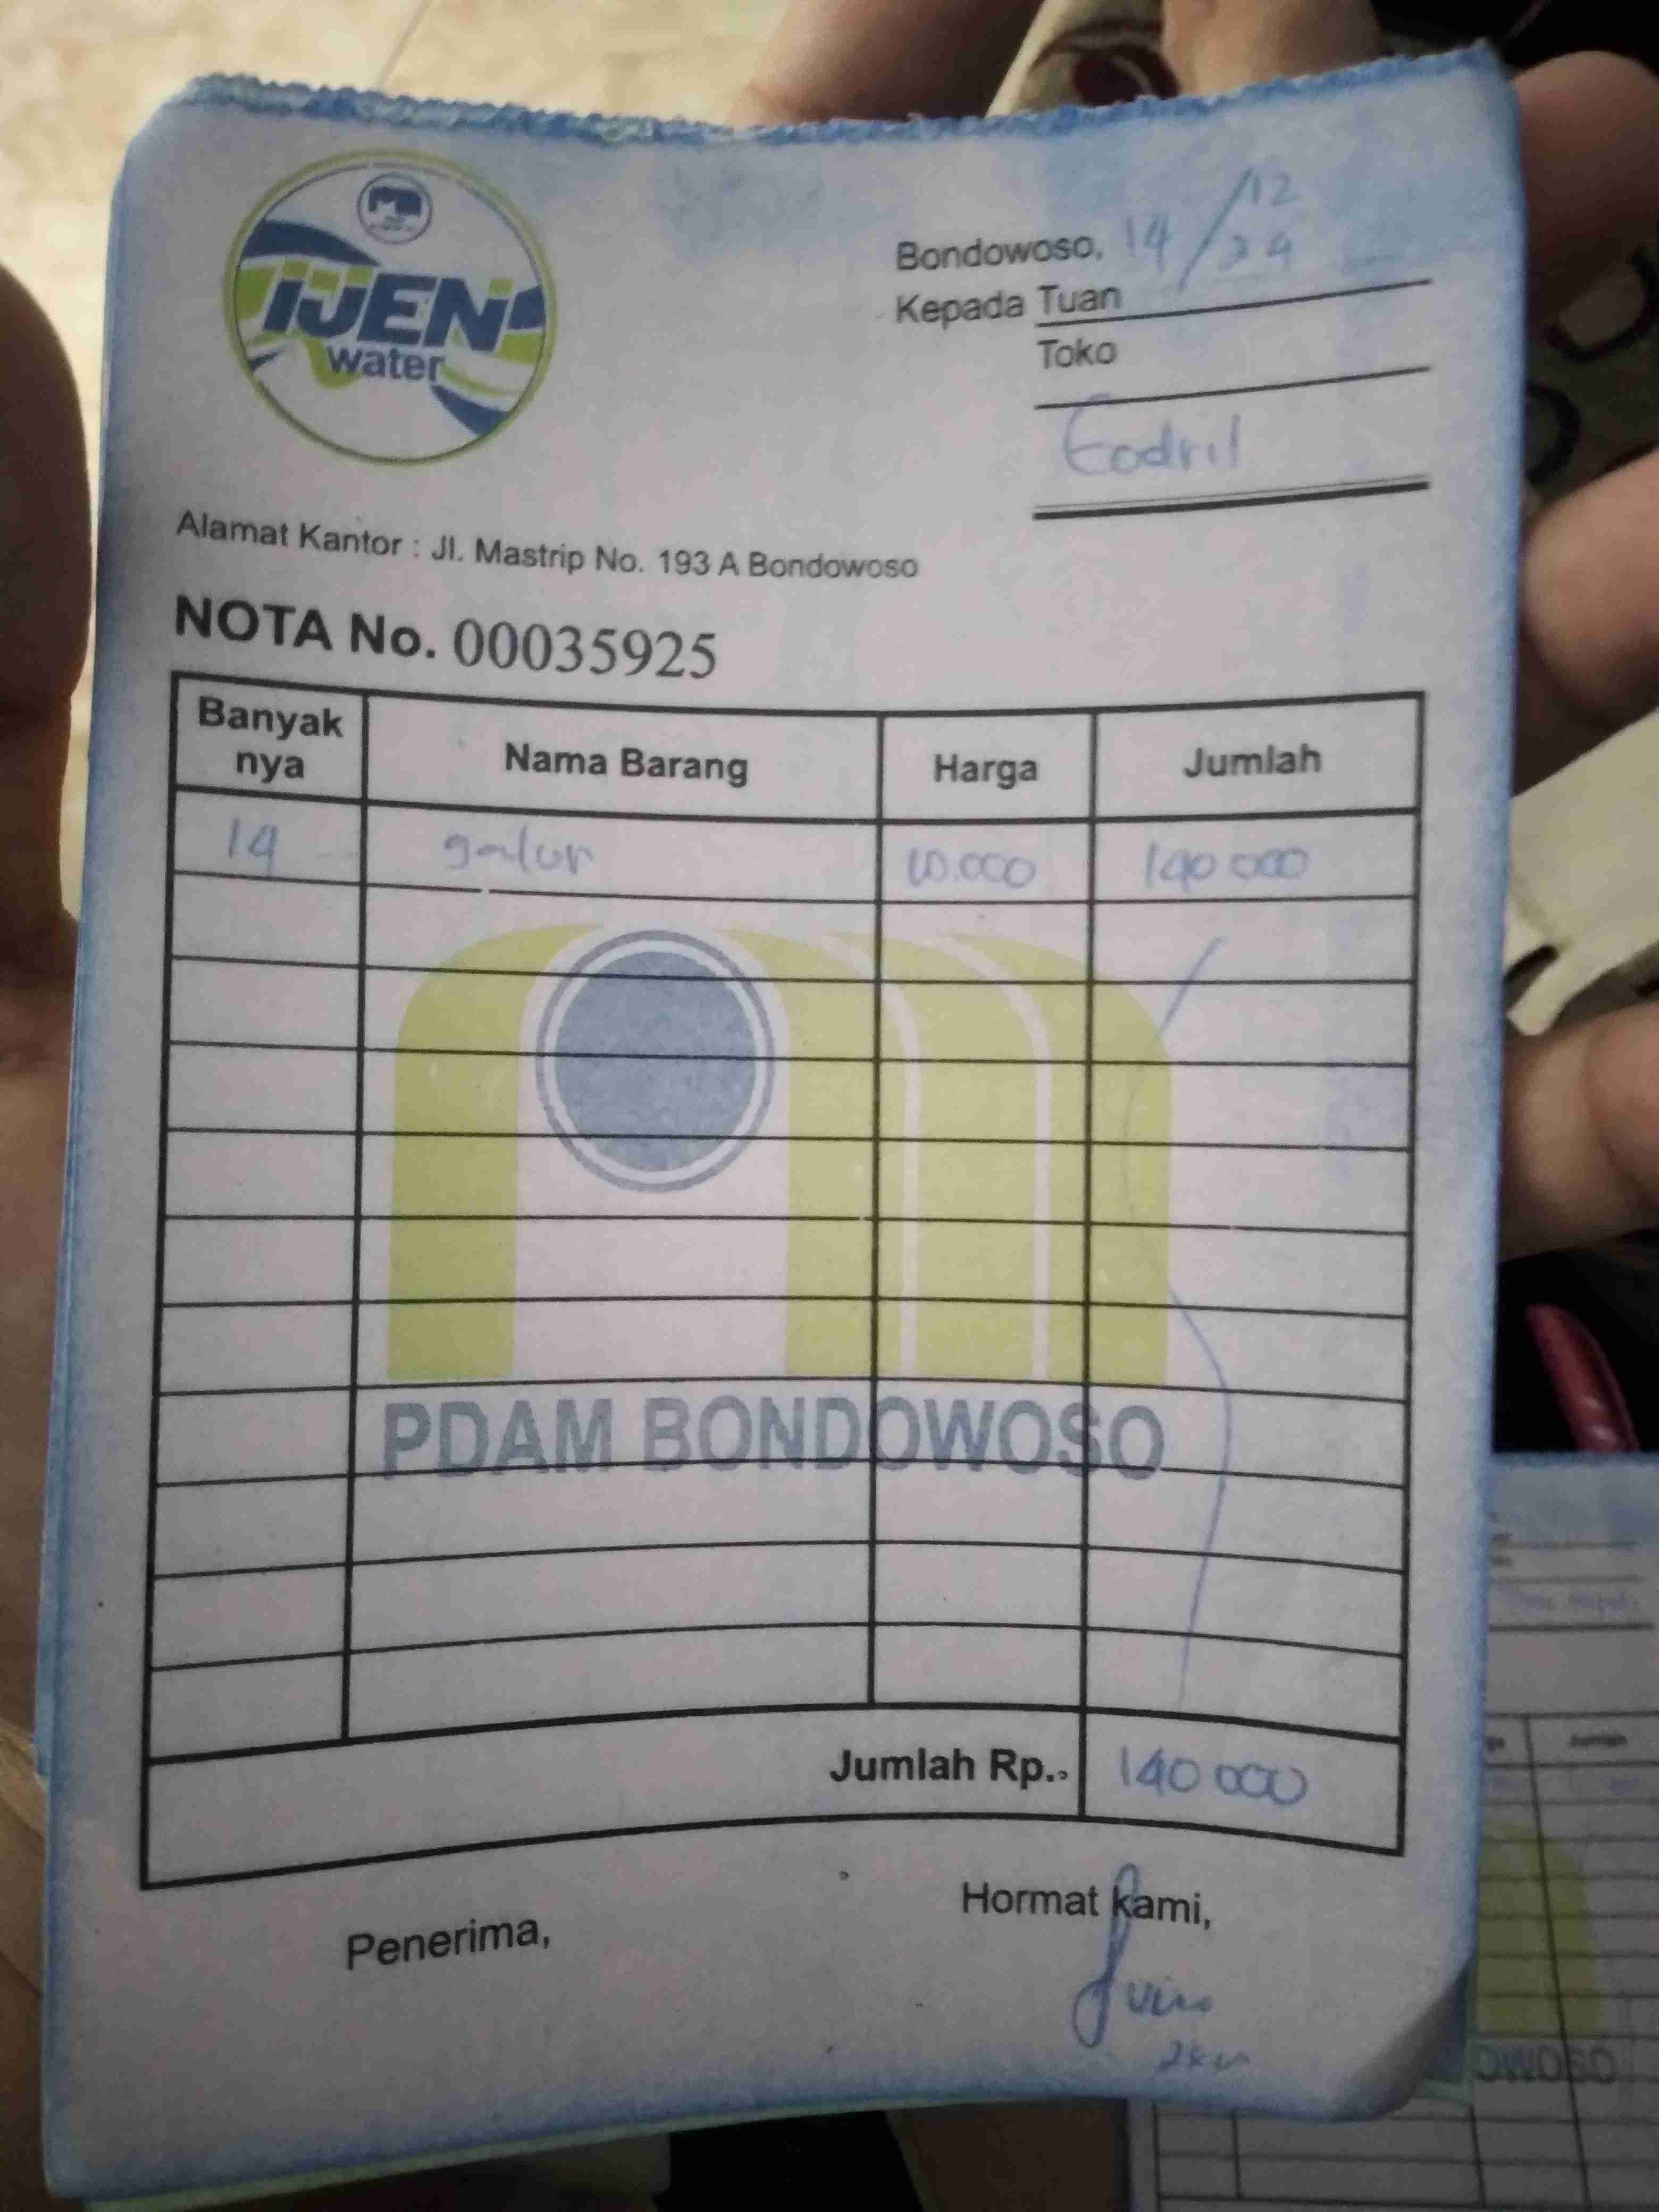 IJEN
water
Bondowoso, 14/12 24
Kepada Tuan
Toko
Eodril
Alamat Kantor : Jl. Mastrip No. 193 A Bondowoso
NOTA No. 00035925
Banyak nya Nama Barang Harga Jumlah
14 galon 10.000 140 000
PDAM BONDOWOSO
Jumlah Rp.. 140 000
Penerima,
Hormat kami,
Jumlah
OWOSO